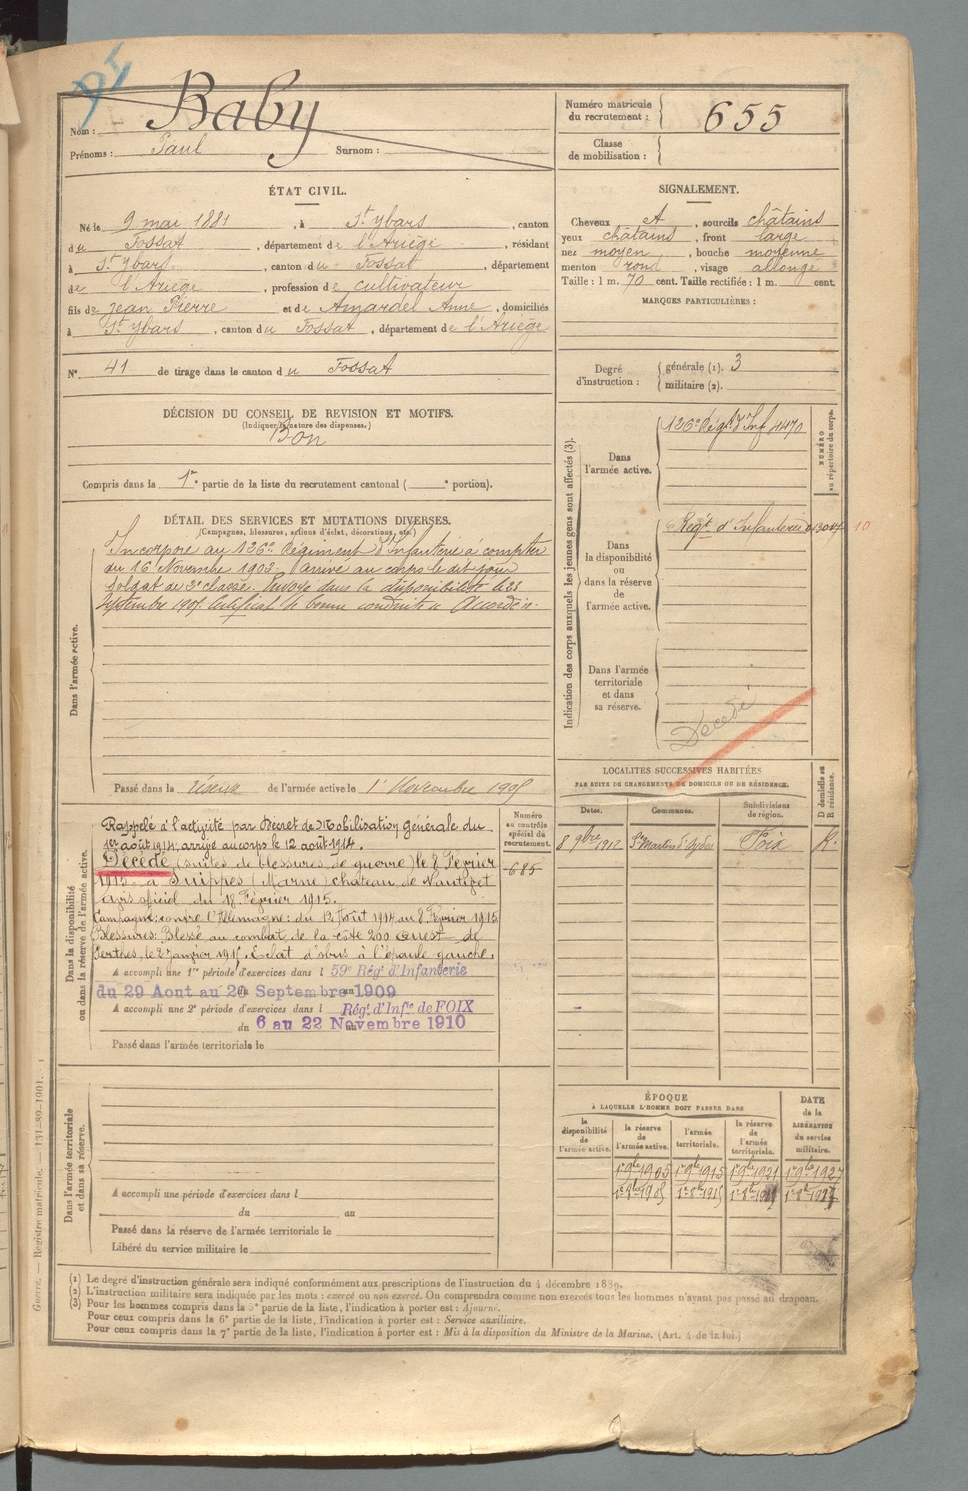 Nom : Baby
Prénoms : Paul Surnom :
Numéro matricule du recrutement : 655
Classe de mobilisation :
ÉTAT CIVIL.
Né le 9 mai 1881, à St Ybars, canton
du Fossat, département de l'Ariège, résidant
à St Ybars, canton du Fossat, département
de l'Ariège, profession de cultivateur
fils de Jean Pierre et de Amardel Anne, domiciliés
à St Ybars, canton du Fossat, département de l'Ariège
N° 41 de tirage dans le canton du Fossat
DÉCISION DU CONSEIL DE REVISION ET MOTIFS.
(Indiquer la nature des dispenses.)
Bon
Compris dans la 1re partie de la liste du recrutement cantonal ( e portion).
SIGNALEMENT.
Cheveux et, sourcils châtains
yeux châtains, front large
nez moyen, bouche moyenne
menton rond, visage allongé
Taille : 1 m. 70 cent. Taille rectifiée : 1 m. cent.
MARQUES PARTICULIÈRES :
Degré d'instruction :
générale (1). 3
militaire (2).
DÉTAIL DES SERVICES ET MUTATIONS DIVERSES.
(Campagnes, blessures, actions d'éclat, décorations, etc.)
Dans l'armée active.
Incorporé au 126e Régiment d'Infanterie à compter
du 16 Novembre 1902. Arrivé au corps le dit jour
soldat de 2e classe. Envoyé dans la disponibilité le 23
Septembre 1905. Certificat de bonne conduite Accordé
Passé dans la réserve de l'armée active le 1er Novembre 1905
Indication des corps auxquels les jeunes gens sont affectés (3).
NUMÉRO au répertoire du corps.
Dans l'armée active.
126e Régt d'Inf 4470
Dans la disponibilité ou dans la réserve de l'armée active.
Régt d'Infanterie 013047 10
Dans l'armée territoriale et dans sa réserve.
Décédé
Dans la disponibilité ou dans la réserve de l'armée active.
Numéro au contrôle spécial du recrutement.
685
Rappelé à l'activité par Décret de Mobilisation générale du
1er août 1914; arrivé au corps le 12 août 1914.
Décédé (suites de blessures de guerre) le 8 Février
1915 à Suippes (Marne) château de Nantivet
avis officiel du 18 Février 1915.
Campagne: contre l'Allemagne: du 12 Août 1914 au 8 Février 1915
Blessures: Blessé au combat de la côte 200 Ouest de
Perthes, le 2 Janvier 1915. Éclat d'obus à l'épaule gauche.
A accompli une 1re période d'exercices dans l 59e Rég. d'Infanterie
du 29 Aout au 20 Septembre au 1909
A accompli une 2e période d'exercices dans l Rég. d'Inf.ie de FOIX
du 6 au 22 Novembre 1910
Passé dans l'armée territoriale le
LOCALITÉS SUCCESSIVES HABITÉES
PAR SUITE DE CHANGEMENTS DE DOMICILE OU DE RÉSIDENCE.
Dates. Communes. Subdivisions de région. D domicile ou R résidence.
8 9bre 1912 St Martin d'Oydes Foix R.
ÉPOQUE
À LAQUELLE L'HOMME DOIT PASSER DANS
DATE de la LIBÉRATION du service militaire.
la disponibilité de l'armée active. la réserve de l'armée active. l'armée territoriale. la réserve de l'armée territoriale.
1er 9bre 1905 1er 9bre 1915 1er 9bre 1921 1er 9bre 1927
1er 8bre 1905 1er 8bre 1915
Dans l'armée territoriale et dans sa réserve.
A accompli une période d'exercices dans l
du au
Passé dans la réserve de l'armée territoriale le
Libéré du service militaire le
(1) Le degré d'instruction générale sera indiqué conformément aux prescriptions de l'instruction du 4 décembre 1889.
(2) L'instruction militaire sera indiquée par les mots : exercé ou non exercé. On comprendra comme non exercés tous les hommes n'ayant pas passé au drapeau.
(3) Pour les hommes compris dans la 5e partie de la liste, l'indication à porter est : Ajourné.
Pour ceux compris dans la 6e partie de la liste, l'indication à porter est : Service auxiliaire.
Pour ceux compris dans la 7e partie de la liste, l'indication à porter est : Mis à la disposition du Ministre de la Marine. (Art. 4 de la loi.)
Guerre. — Registre matricule. — 131-89-1901.